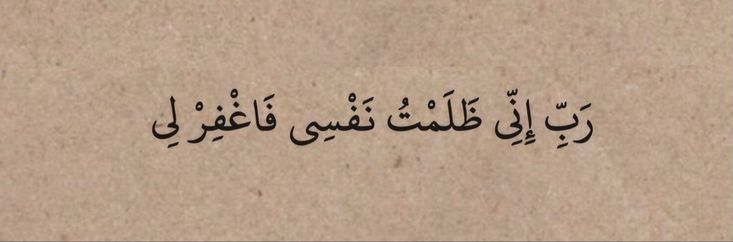 رَبِّ إِنِّى ظَلَمْتُ نَفْسِى فَاغْفِرْ لِى